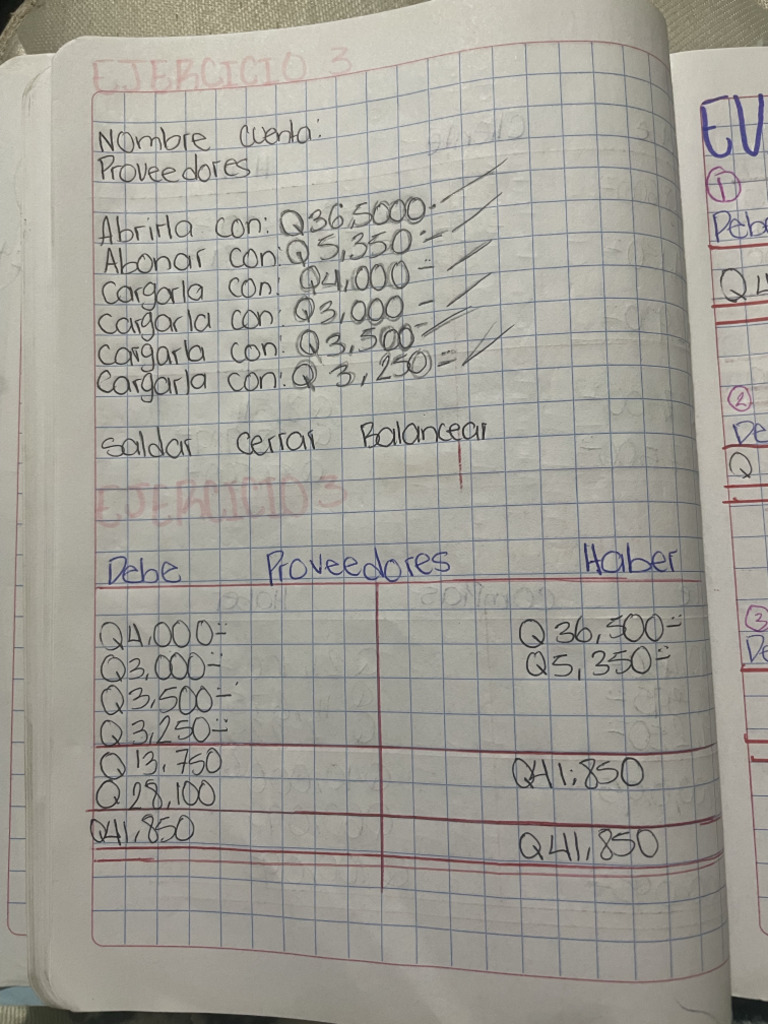 EJERCICIO 3
Nombre cuenta:
Proveedores
Abrirla con: Q36,5000=
Abonar con: Q5,350=
Cargarla con: Q4,000=
Cargarla con: Q3,000=
Cargarla con: Q3,500=
Cargarla con: Q3,250=
Saldar cerrar Balancear
EJERCICIO 3
Debe Proveedores Haber
Q4,000= Q36,500=
Q3,000= Q5,350=
Q3,500=
Q3,250=
Q13,750 Q41,850
Q28,100
Q41,850 Q41,850
EV
1
Debe
Q
2
De
Q
3
De